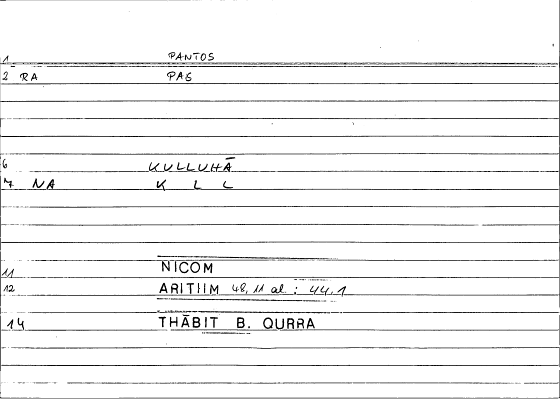 1 PANTOS
2 RA PAS
6 KULLUHĀ
7 NA K L L
11 NICOM
12 ARITHM 48, 11 al : 44.1
14 THĀBIT B. QURRA